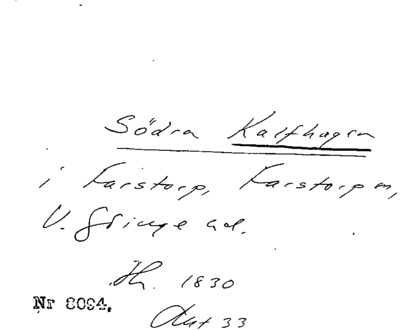 Södra Kalfhagen
i Farstorp, Farstorp sn,
V. Göinge hd.
Jh. 1830
Nr 8094. Akt 33